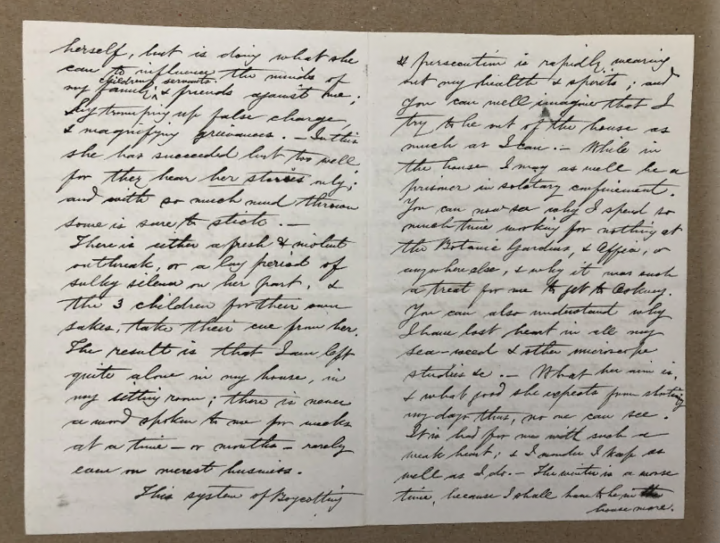 herself, but is doing what she
can to influence the minds of
children servants
my family, & friends against me;
by trumping up false charge,
& magnifying grievances. — In this
she has succeeded but too well,
for they hear her stories only;
and with so much mud thrown
some is sure to stick. —
There is either a fresh & violent
outbreak, or a long period of
sulky silence on her part, &
the 3 children for their own
sakes, take their cue from her.
The result is that I am left
quite alone in my house, in
my sitting room; there is never
a word spoken to me for weeks
at a time — or months — rarely
even on merest business.
This system of Boycotting
& persecution is rapidly wearing
out my health & spirits; and
you can well imagine that I
try to be out of the house as
much as I can. — While in
the house I may as well be a
prisoner in solitary confinement.
You can now see why I spend so
much time working for nothing at
the Botanic Gardens, & Office, or
anywhere else, & why it was such
a treat for me to get to
You can also understand why
I have lost heart in all my
sea-weed & other microscope
studies &c. — What her aim is,
& what good she expects from
my days thus, no one can see.
It is bad for me with such a
weak heart; & I wonder I keep as
well as I do. — The winter is a worse
time, because I shall have to be in the
house more.